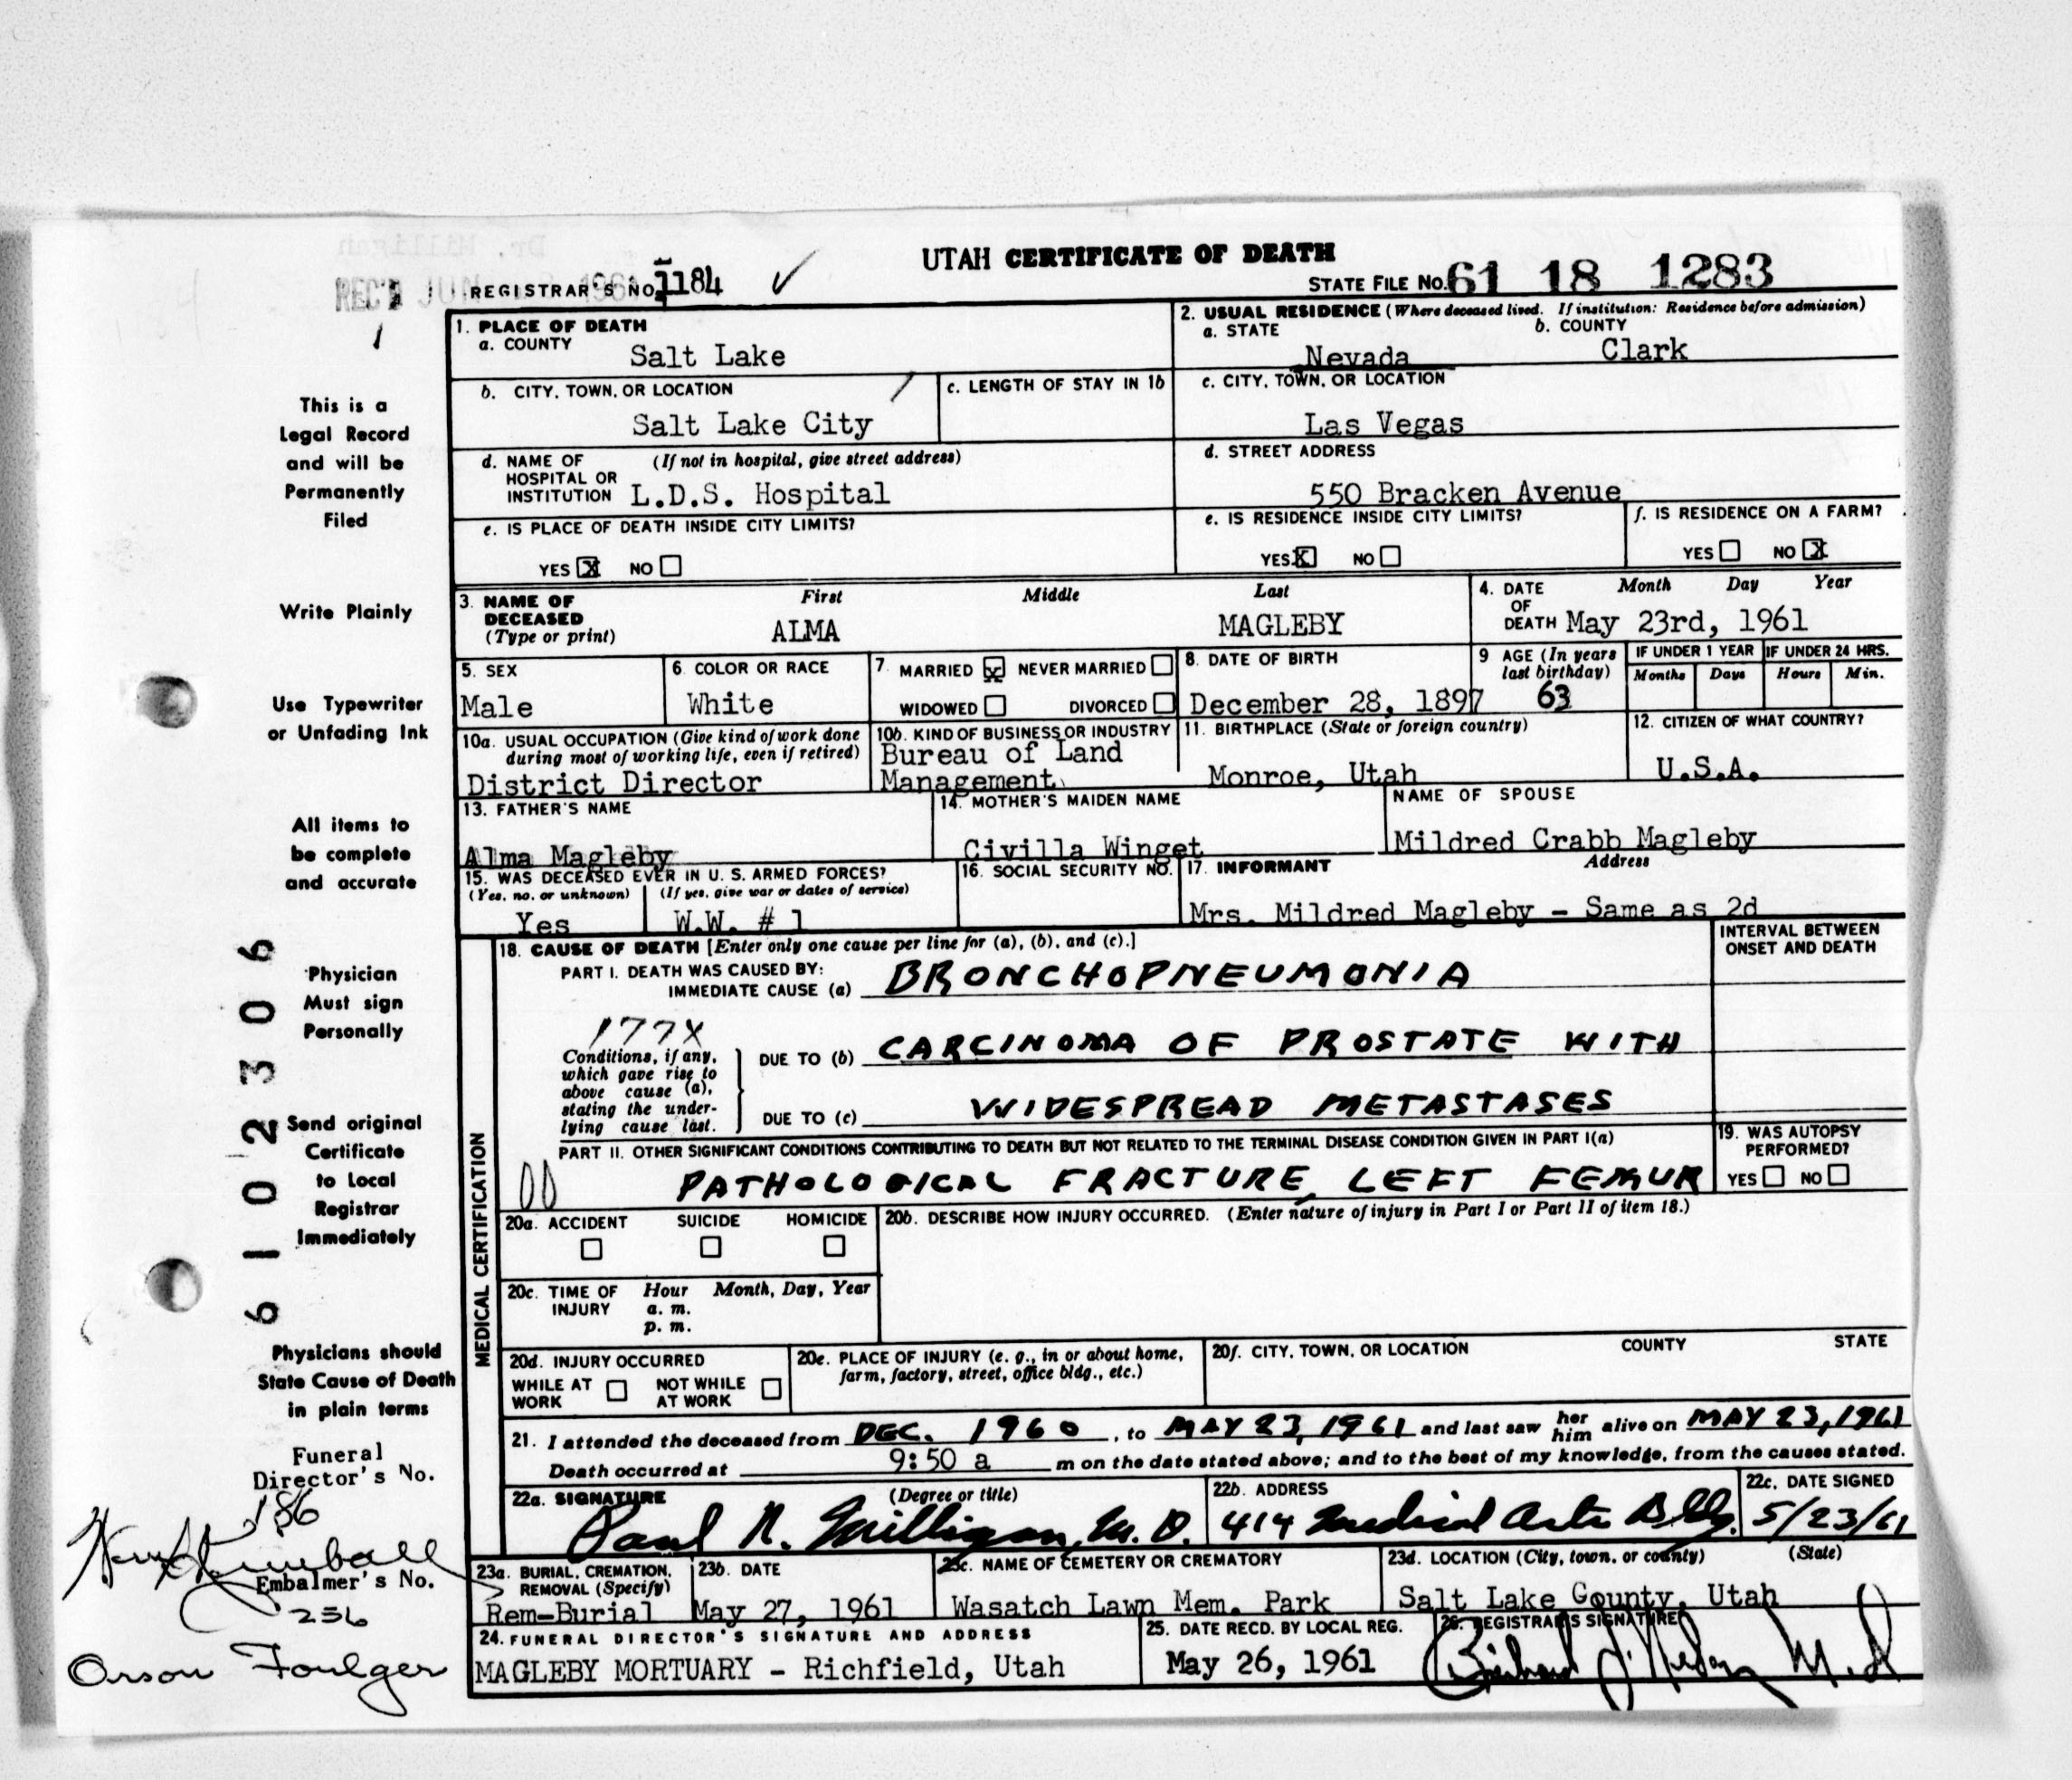 UTAH CERTIFICATE OF DEATH
REC'D JUN 1961 REGISTRAR'S NO. 1184
STATE FILE NO. 61 18 1283
1. PLACE OF DEATH
a. COUNTY
Salt Lake
2. USUAL RESIDENCE (Where deceased lived. If institution: Residence before admission)
a. STATE
Nevada
b. COUNTY
Clark
b. CITY, TOWN, OR LOCATION
Salt Lake City
c. LENGTH OF STAY IN 1b
c. CITY, TOWN, OR LOCATION
Las Vegas
d. NAME OF HOSPITAL OR INSTITUTION
(If not in hospital, give street address)
L.D.S. Hospital
d. STREET ADDRESS
550 Bracken Avenue
e. IS PLACE OF DEATH INSIDE CITY LIMITS?
YES X NO
e. IS RESIDENCE INSIDE CITY LIMITS?
YES X NO
f. IS RESIDENCE ON A FARM?
YES NO X
3. NAME OF DECEASED
(Type or print)
First Middle Last
ALMA MAGLEBY
4. DATE OF DEATH
Month Day Year
May 23rd, 1961
5. SEX
Male
6. COLOR OR RACE
White
7. MARRIED X NEVER MARRIED
WIDOWED DIVORCED
8. DATE OF BIRTH
December 28, 1897
9 AGE (In years last birthday)
63
IF UNDER 1 YEAR
Months Days
IF UNDER 24 HRS.
Hours Min.
10a. USUAL OCCUPATION (Give kind of work done during most of working life, even if retired)
District Director
10b. KIND OF BUSINESS OR INDUSTRY
Bureau of Land
Management
11. BIRTHPLACE (State or foreign country)
Monroe, Utah
12. CITIZEN OF WHAT COUNTRY?
U.S.A.
13. FATHER'S NAME
Alma Magleby
14. MOTHER'S MAIDEN NAME
Civilla Winget
NAME OF SPOUSE
Mildred Crabb Magleby
15. WAS DECEASED EVER IN U. S. ARMED FORCES?
(Yes, no, or unknown) (If yes, give war or dates of service)
Yes W.W. # 1
16. SOCIAL SECURITY NO.
17. INFORMANT Address
Mrs. Mildred Magleby - Same as 2d
MEDICAL CERTIFICATION
18. CAUSE OF DEATH [Enter only one cause per line for (a), (b), and (c).]
INTERVAL BETWEEN ONSET AND DEATH
PART I. DEATH WAS CAUSED BY:
IMMEDIATE CAUSE (a) BRONCHOPNEUMONIA
177X
Conditions, if any, which gave rise to above cause (a), stating the underlying cause last.
DUE TO (b) CARCINOMA OF PROSTATE WITH
DUE TO (c) WIDESPREAD METASTASES
PART II. OTHER SIGNIFICANT CONDITIONS CONTRIBUTING TO DEATH BUT NOT RELATED TO THE TERMINAL DISEASE CONDITION GIVEN IN PART I(a)
00 PATHOLOGICAL FRACTURE, LEFT FEMUR
19. WAS AUTOPSY PERFORMED?
YES NO
20a. ACCIDENT SUICIDE HOMICIDE
20b. DESCRIBE HOW INJURY OCCURRED. (Enter nature of injury in Part I or Part II of item 18.)
20c. TIME OF INJURY
Hour Month, Day, Year
a. m.
p. m.
20d. INJURY OCCURRED
WHILE AT WORK NOT WHILE AT WORK
20e. PLACE OF INJURY (e. g., in or about home, farm, factory, street, office bldg., etc.)
20f. CITY, TOWN, OR LOCATION COUNTY STATE
21. I attended the deceased from DEC. 1960, to MAY 23, 1961 and last saw her him alive on MAY 23, 1961
Death occurred at 9:50 a m on the date stated above; and to the best of my knowledge, from the causes stated.
22a. SIGNATURE (Degree or title)
Paul N. Milligan, M. D.
22b. ADDRESS
414 Medical Arts Bldg.
22c. DATE SIGNED
5/23/61
23a. BURIAL, CREMATION, REMOVAL (Specify)
Rem-Burial
23b. DATE
May 27, 1961
23c. NAME OF CEMETERY OR CREMATORY
Wasatch Lawn Mem. Park
23d. LOCATION (City, town, or county) (State)
Salt Lake County, Utah
24. FUNERAL DIRECTOR'S SIGNATURE AND ADDRESS
MAGLEBY MORTUARY - Richfield, Utah
25. DATE RECD. BY LOCAL REG.
May 26, 1961
26. REGISTRAR'S SIGNATURE
This is a
Legal Record
and will be
Permanently
Filed
Write Plainly
Use Typewriter
or Unfading Ink
All items to
be complete
and accurate
Physician
Must sign
Personally
Send original
Certificate
to Local
Registrar
Immediately
Physicians should
State Cause of Death
in plain terms
Funeral
Director's No.
186
Kimball
Embalmer's No.
256
Orson Foulger
6 1 0 2 3 0 6